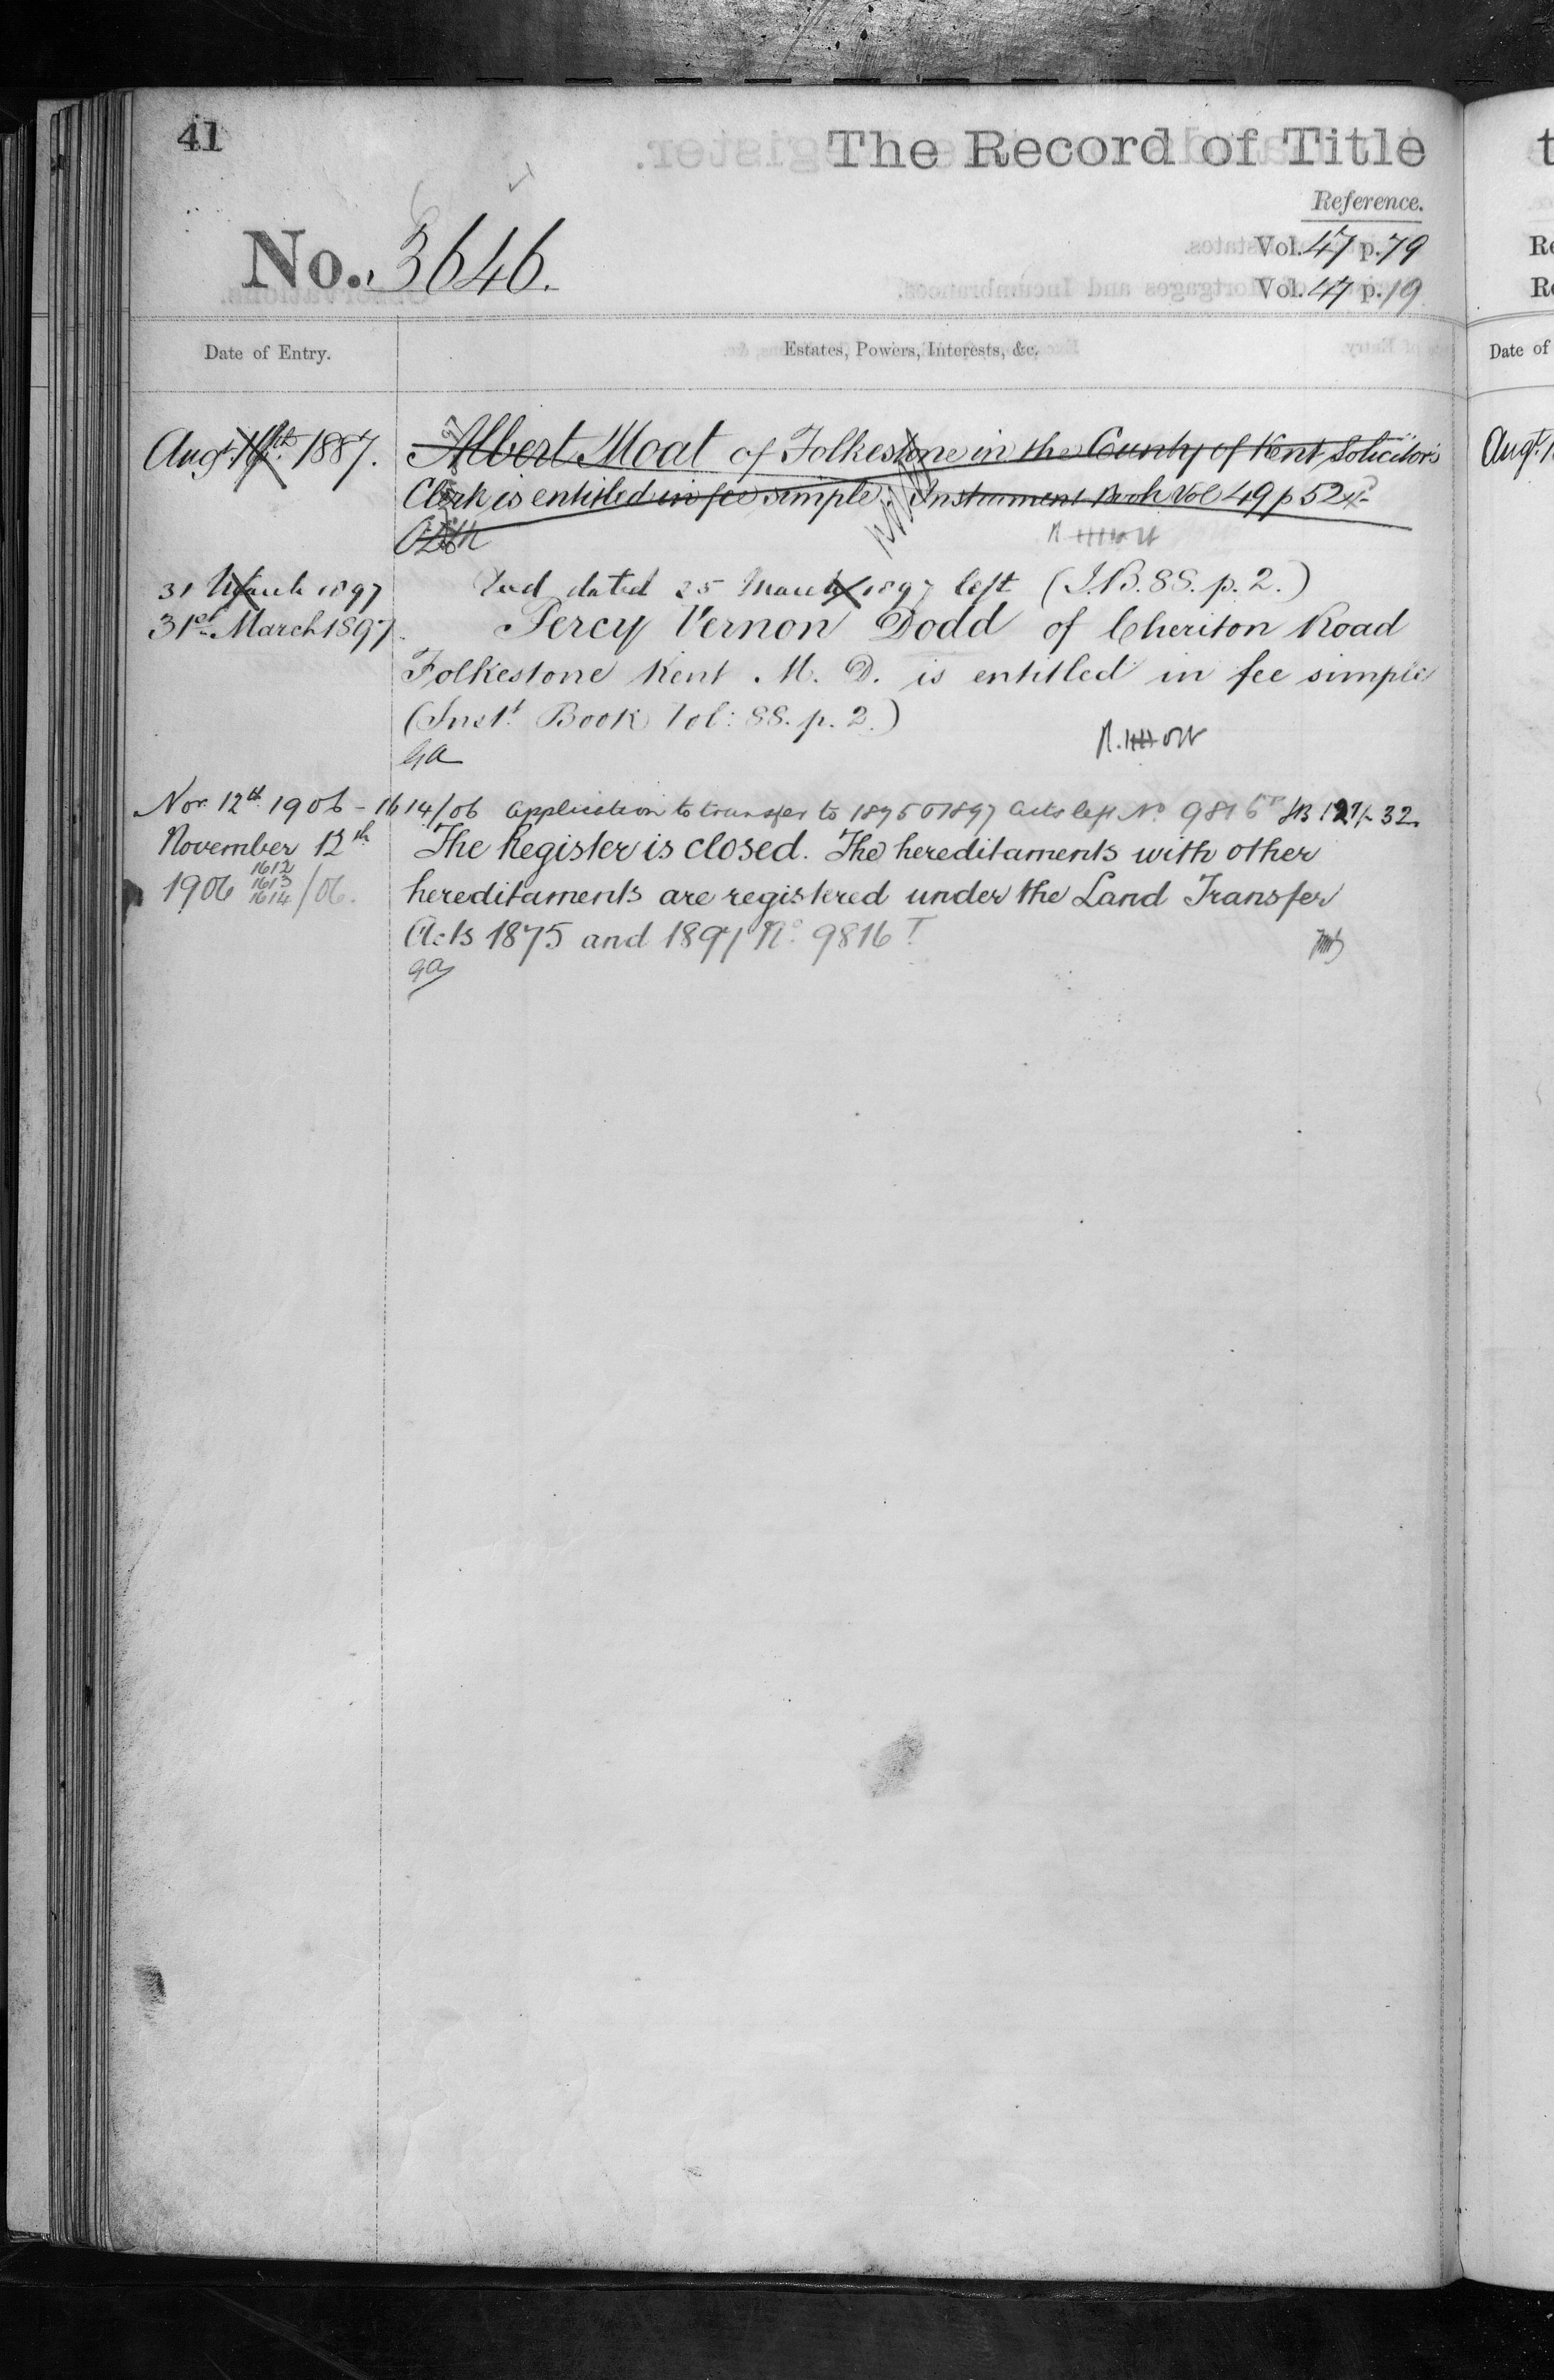 41
The Record of Title
Reference.
No. 3646.
Vol. 47 p. 79
Vol. 47 p. 19
Date of Entry.
Estates, Powers, Interests, &c.
Augt. 1887. Albert Moat of Folkestone in the County of Kent Solicitor's
Clerk is entitled in fee simple. Instrument Book Vol 49 p 52
31 March 1897 Deed dated 25 March 1897 left (I.B. 88. p. 2.)
31st March 1897. Percy Vernon Dodd of Cheriton Road
Folkestone Kent M. D. is entitled in fee simple
(Inst. Book Vol: 88. p. 2.)
GA
Nov. 12th 1906 - 1614/06 Application to transfer to 1875 & 1897 Acts left No 9816 T IB 127/p 32
November 12th The Register is closed. The hereditaments with other
1906 1612 1613 1614 /06. hereditaments are registered under the Land Transfer
Acts 1875 and 1897 No. 9816 T
GA
Date of
Augt. 1